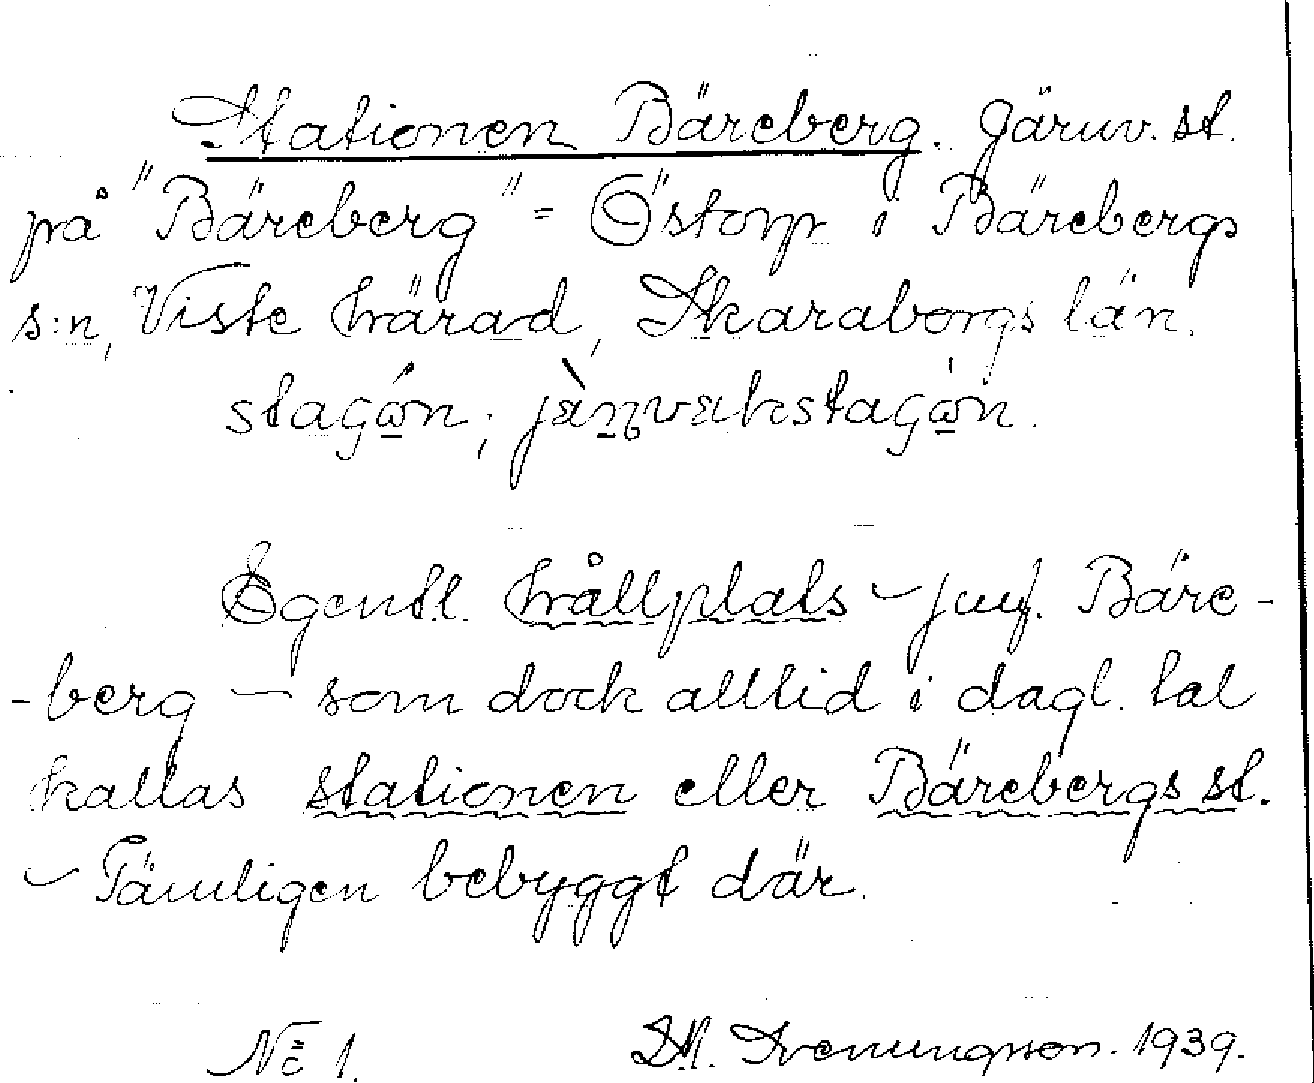 Stationen Bäreberg. Järnv. st.
på "Bäreberg" = Östorp i Bärebergs
s:n, Viste härad, Skaraborgs län.
Egentl. hållplats – jmf. Bäre-
-berg – som dock alltid i dagl. tal
kallas stationen eller Bärebergs st.
– Tämligen bebyggt där.
No 1. 1939.